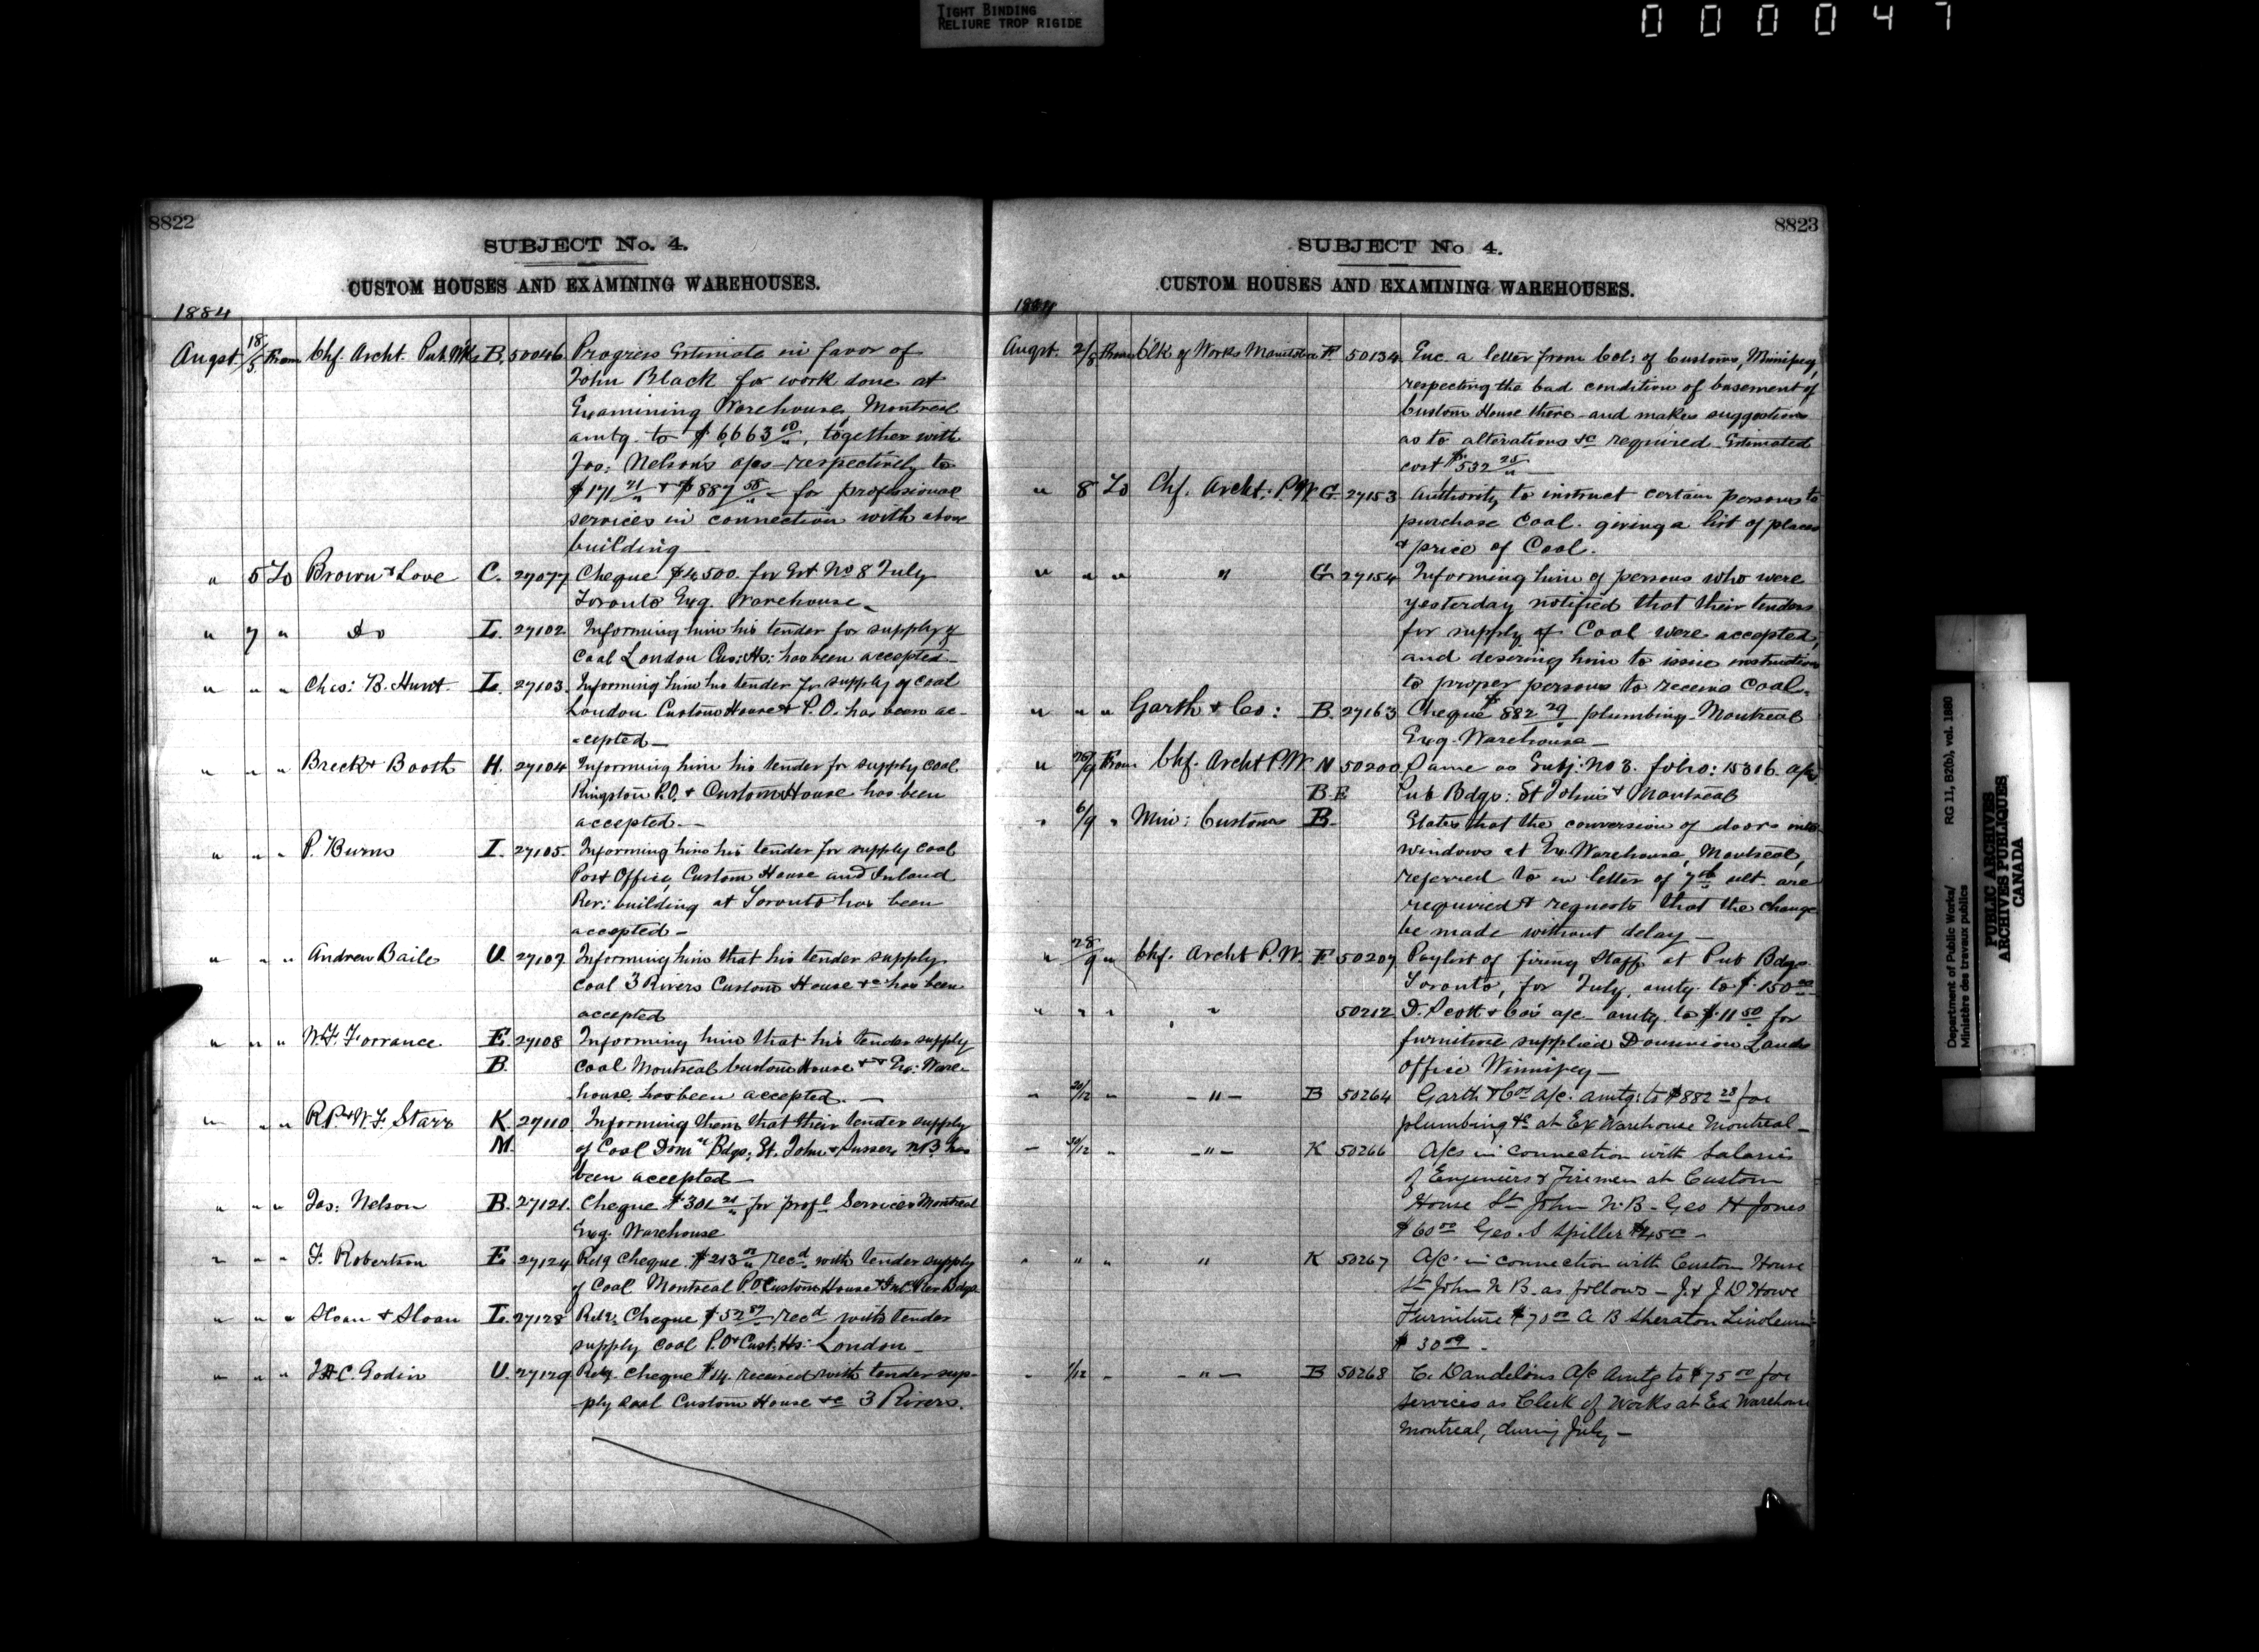 TIGHT BINDING
RELIURE TROP RIGIDE
000047
8822
SUBJECT No. 4.
CUSTOM HOUSES AND EXAMINING WAREHOUSES.
1884
Augst 18/5 From Chf. Archt. Pub. Wks B. 50046 Progress Estimate in favor of
John Black for work done at
Examining Warehouse, Montreal
amtg. to $6663 10/, together with
Jas: Nelson's a/cs respectively to
$171 21/ & $887 58/ for professional
services in connection with above
building —
" 5 To Brown & Love C. 27077 Cheque $4,500. for Est No 8 July
Toronto Exg. Warehouse. —
" 7 " do L. 27102 Informing him his tender for supply of
Coal London Cus: Hs: has been accepted —
" " " Chas: B. Hunt. L. 27103. Informing him his tender for supply of coal
London Custom House & P.O. has been ac-
-cepted —
" " " Breck & Booth H. 27104 Informing him his tender for supply coal
Kingston P.O. & Custom House has been
accepted. —
" " " P. Burns I. 27105. Informing him his tender for supply coal
Post Office, Custom House and Inland
Rev: building at Toronto has been
accepted —
" " " Andrew Baile U. 27107 Informing him that his tender supply
coal 3 Rivers Custom House &c has been
accepted
" " " W.F. Torrance E. 27108 Informing him that his tender supply
B. coal Montreal Custom House & Ex: Ware-
house, has been accepted. —
" " " R.P. & W.F. Starr K. 27110. Informing them that their tender supply
M. of Coal Domn Bdgs: St. John & Sussex N.B. has
been accepted —
" " " Jas: Nelson B. 27121. Cheque $301 21/ for profl Services Montreal
Exg. Warehouse
" " " F. Robertson E. 27124 Retg Cheque $213 00/ recd with tender supply
of Coal Montreal P.O. Custom House & In. Rev Bdgs
" " " Sloan & Sloan L. 27128 Retg. Cheque recd with tender
supply coal P.O. & Cust. Hs: London —
" " " U. 27129 Retg. Cheque $14. received with tender sup-
ply coal Custom House &c 3 Rivers.
8823
SUBJECT No 4.
CUSTOM HOUSES AND EXAMINING WAREHOUSES.
1884
Augst. 2/8 From Clk of Works Manitoba F. 50134 Enc. a letter from Col: of Customs, Winnipeg,
respecting the bad condition of basement of
Custom House there — and makes suggestions
as to alterations &c required. Estimated
cost $532 25/ —
" 8 To Chf. Archt: P.W. G. 27153 Authority to instruct certain persons to
purchase Coal. giving a list of places
& price of Coal.
" " " " G. 27154 Informing him of persons who were
yesterday notified that their tenders
for supply of Coal were accepted,
and desiring him to issue instructions
to proper persons to receive coal.
" " " Garth & Co: B. 27163 Cheque $882 29/ plumbing. Montreal
Exg. Warehouse —
" From Chf. Archt P.W. N 50200 Same as Subj: No 3. folio: 15316. a/cs
B. E. Pub Bdgs: St Johns & Montreal
" 6/9 " Min: Customs B. States that the conversion of doors into
windows at Ex. Warehouse, Montreal,
referred to in letter of 7th ult. are
required & requests that the change
be made without delay —
" 28/9 " Chf. Archt P.W. F. 50207 Paylist of firing Staff at Pub Bdgs
Toronto, for July, amtg. to $150 00
" " " " 50212 D. Scott & Co's a/c amtg. to $11 50 for
furniture supplied Dominion Lands
Office Winnipeg —
" 20/12 " — " — B 50264 Garth & Co's a/c. amtg: to $882 28 for
plumbing &c at Ex Warehouse Montreal —
" 30/12 " — " — K 50266 A/cs in connection with Salaries
of Engineers & Firemen at Custom
House St John N.B. Geo H Jones
$60 00 Geo. S Spiller $45 00 —
" " " " K 50267 A/c. in connection with Custom House
St John N B. as follows — J. & J D Howe
Furniture $70 00 A B Sheraton Linoleum
$30 09 —
" 1/12 " — " — B 50268 C. Dandelins A/c amtg to $75 00 for
services as Clerk of Works at Ex Warehouse
Montreal, during July —
Department of Public Works/ RG 11, B2(b), vol. 1680
Ministère des travaux publics
PUBLIC ARCHIVES
ARCHIVES PUBLIQUES
CANADA